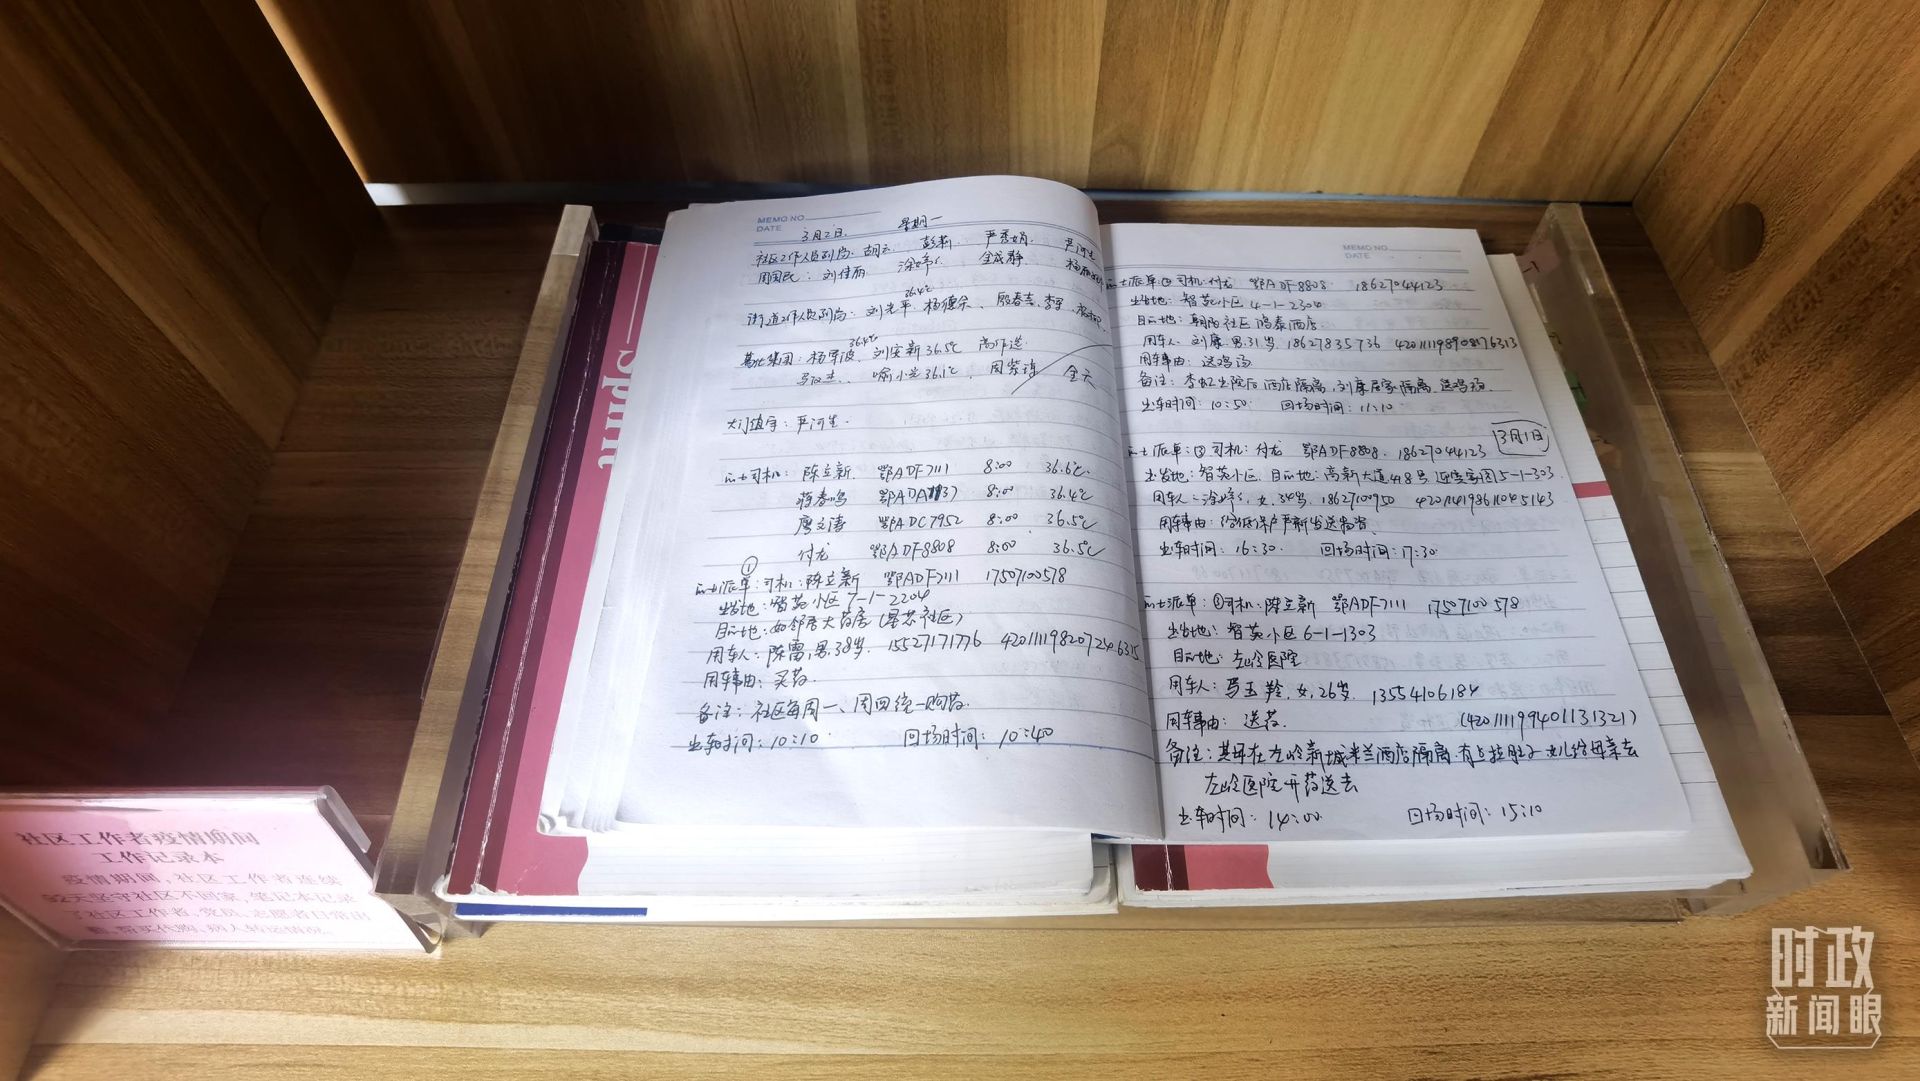 MEMO NO
DATE
3月2日 星期一
社区工作人员到岗: 胡云 彭莉 严秀娟 严河生
周国民: 刘佳丽 涂婷 金成静
36.4℃
街道工作人员到岗: 刘光平、杨德余、殷春吉、李军、
36.4℃
葛化集团: 杨军波、刘安新36.5℃
喻小兰36.1℃、周紫琼 全天
大门值守: 严河生.
的士司机: 陈立新 鄂ADF7111 8:00 36.6℃
蒋春鸣 8:00 36.4℃
唐文涛 鄂ADC7952 8:00 36.5℃
付龙 鄂ADF8808 8:00 36.5℃
的士派单:①司机:陈立新 鄂ADF7111 17507100578
出发地:智苑小区7-1-2204
目的地:好邻居大药房(星芯社区)
用车人:陈雷,男,38岁, 15527171776 420111198207246315
用车事由:买药.
备注:社区每周一、周四统一购药.
出车时间:10:10 回场时间:10:40
MEMO NO
DATE
的士派单:②司机:付龙 鄂ADF8808 18627044123
出发地:智苑小区4-1-2304
目的地:朝阳社区鸿泰酒店
用车人 刘康.男.31岁, 18627835736 420111198908176313
用车事由:送鸡汤
备注:李虹出院后酒店隔离,刘康居家隔离,送鸡汤.
出车时间:10:50 回场时间:11:10
3月1日
的士派单:③司机:付龙 鄂ADF8808. 18627044123
出发地:智苑小区 目的地:高新大道418号 5-1-303
用车人:涂婷,女,34岁, 18627100950 420114198611045143
用车事由:给低保户严新发送物资
出车时间:16:30 回场时间:17:30
的士派单:④司机:陈立新 鄂ADF7111 17507100578
出发地:智苑小区6-1-1303
目的地:左岭医院
用车人:马玉羚,女,26岁, 13554106184
用车事由:送药. (420111199401131321)
备注:其母在左岭新城米兰酒店隔离.有点拉肚子 女儿给母亲去
左岭医院开药送去
出车时间:14:00 回场时间:15:10
Spirit
社区工作者疫情期间
工作记录本
疫情期间,社区工作者连续
92天坚守社区不回家,笔记本记录
了社区工作者、党员、志愿者日常出
勤、药买代购、病人转运情况。
时政
新闻眼